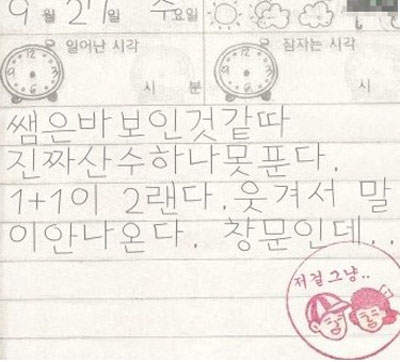 9월 27일 수요일
일어난 시각
시 분
잠자는 시각
시
쌤은바보인것같따
진짜산수하나못푼다.
1+1이 2랜다.웃겨서 말
이안나온다. 창문인데..
저걸그냥..